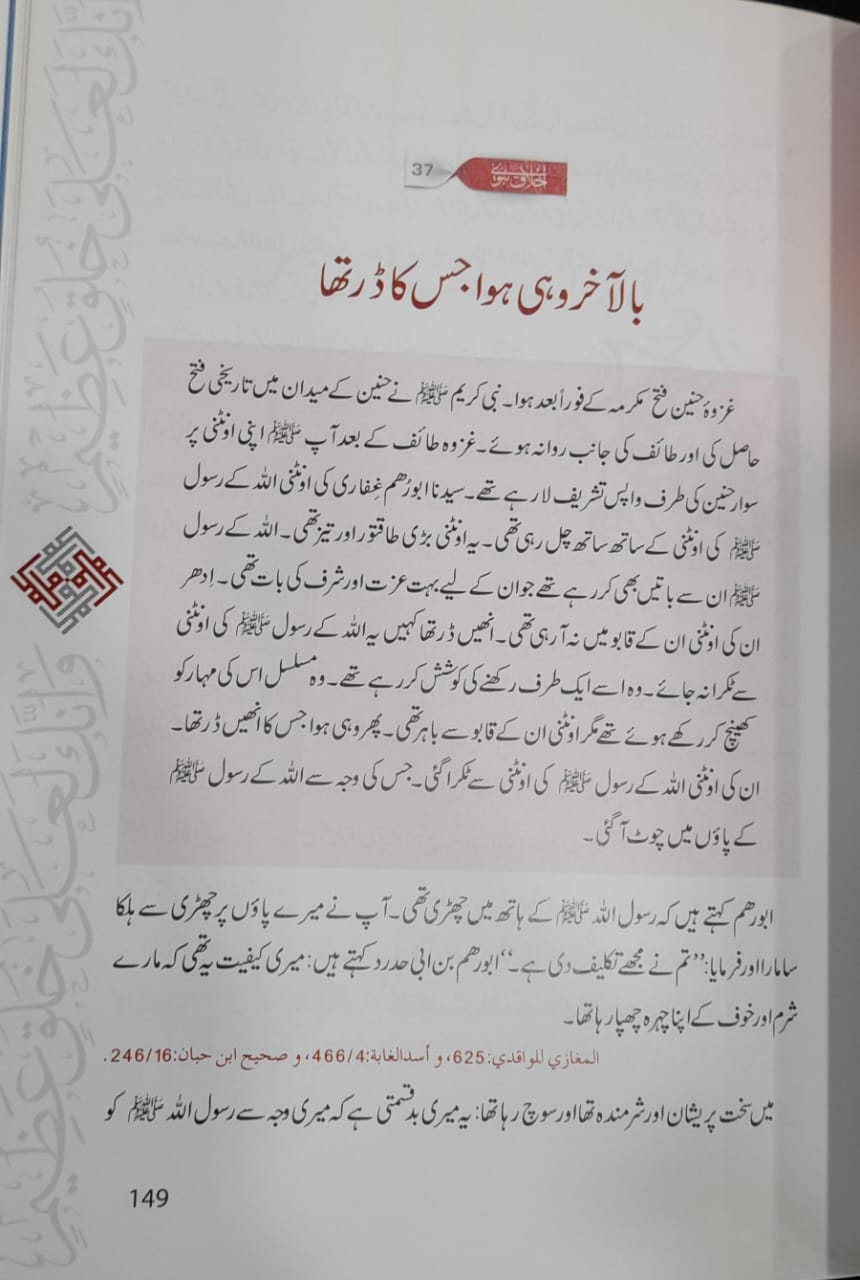 وَإِنَّكَ لَعَلَىٰ خُلُقٍ عَظِيمٍ
37
اخلاق نبوی
بالآخر وہی ہوا جس کا ڈر تھا
غزوۂ حنین فتح مکرمہ کے فوراً بعد ہوا۔ نبی کریم ﷺ نے حنین کے میدان میں تاریخی فتح
حاصل کی اور طائف کی جانب روانہ ہوئے۔ غزوہ طائف کے بعد آپ ﷺ اپنی اونٹنی پر
سوار حنین کی طرف واپس تشریف لا رہے تھے۔ سیدنا ابورُھم غِفاری کی اونٹنی اللہ کے رسول
ﷺ کی اونٹنی کے ساتھ ساتھ چل رہی تھی۔ یہ اونٹنی بڑی طاقتور اور تیز تھی۔ اللہ کے رسول
ﷺ ان سے باتیں بھی کر رہے تھے جو ان کے لیے بہت عزت اور شرف کی بات تھی۔ اِدھر
ان کی اونٹنی ان کے قابو میں نہ آ رہی تھی۔ انھیں ڈر تھا کہیں یہ اللہ کے رسول ﷺ کی اونٹنی
سے ٹکرا نہ جائے۔ وہ اسے ایک طرف رکھنے کی کوشش کر رہے تھے۔ وہ مسلسل اس کی مہار کو
کھینچ کر رکھے ہوئے تھے مگر اونٹنی ان کے قابو سے باہر تھی۔ پھر وہی ہوا جس کا انھیں ڈر تھا۔
ان کی اونٹنی اللہ کے رسول ﷺ کی اونٹنی سے ٹکرا گئی۔ جس کی وجہ سے اللہ کے رسول ﷺ
کے پاؤں میں چوٹ آ گئی۔
ابورھم کہتے ہیں کہ رسول اللہ ﷺ کے ہاتھ میں چھڑی تھی۔ آپ نے میرے پاؤں پر چھڑی سے ہلکا
سا مارا اور فرمایا: ’’تم نے مجھے تکلیف دی ہے۔‘‘ ابورھم بن ابی حدرد کہتے ہیں: میری کیفیت یہ تھی کہ مارے
شرم اور خوف کے اپنا چہرہ چھپا رہا تھا۔
المغازي للواقدي:625، و أسدالغابة:466/4، و صحيح ابن حبان:246/16.
میں سخت پریشان اور شرمندہ تھا اور سوچ رہا تھا: یہ میری بدقسمتی ہے کہ میری وجہ سے رسول اللہ ﷺ کو
149